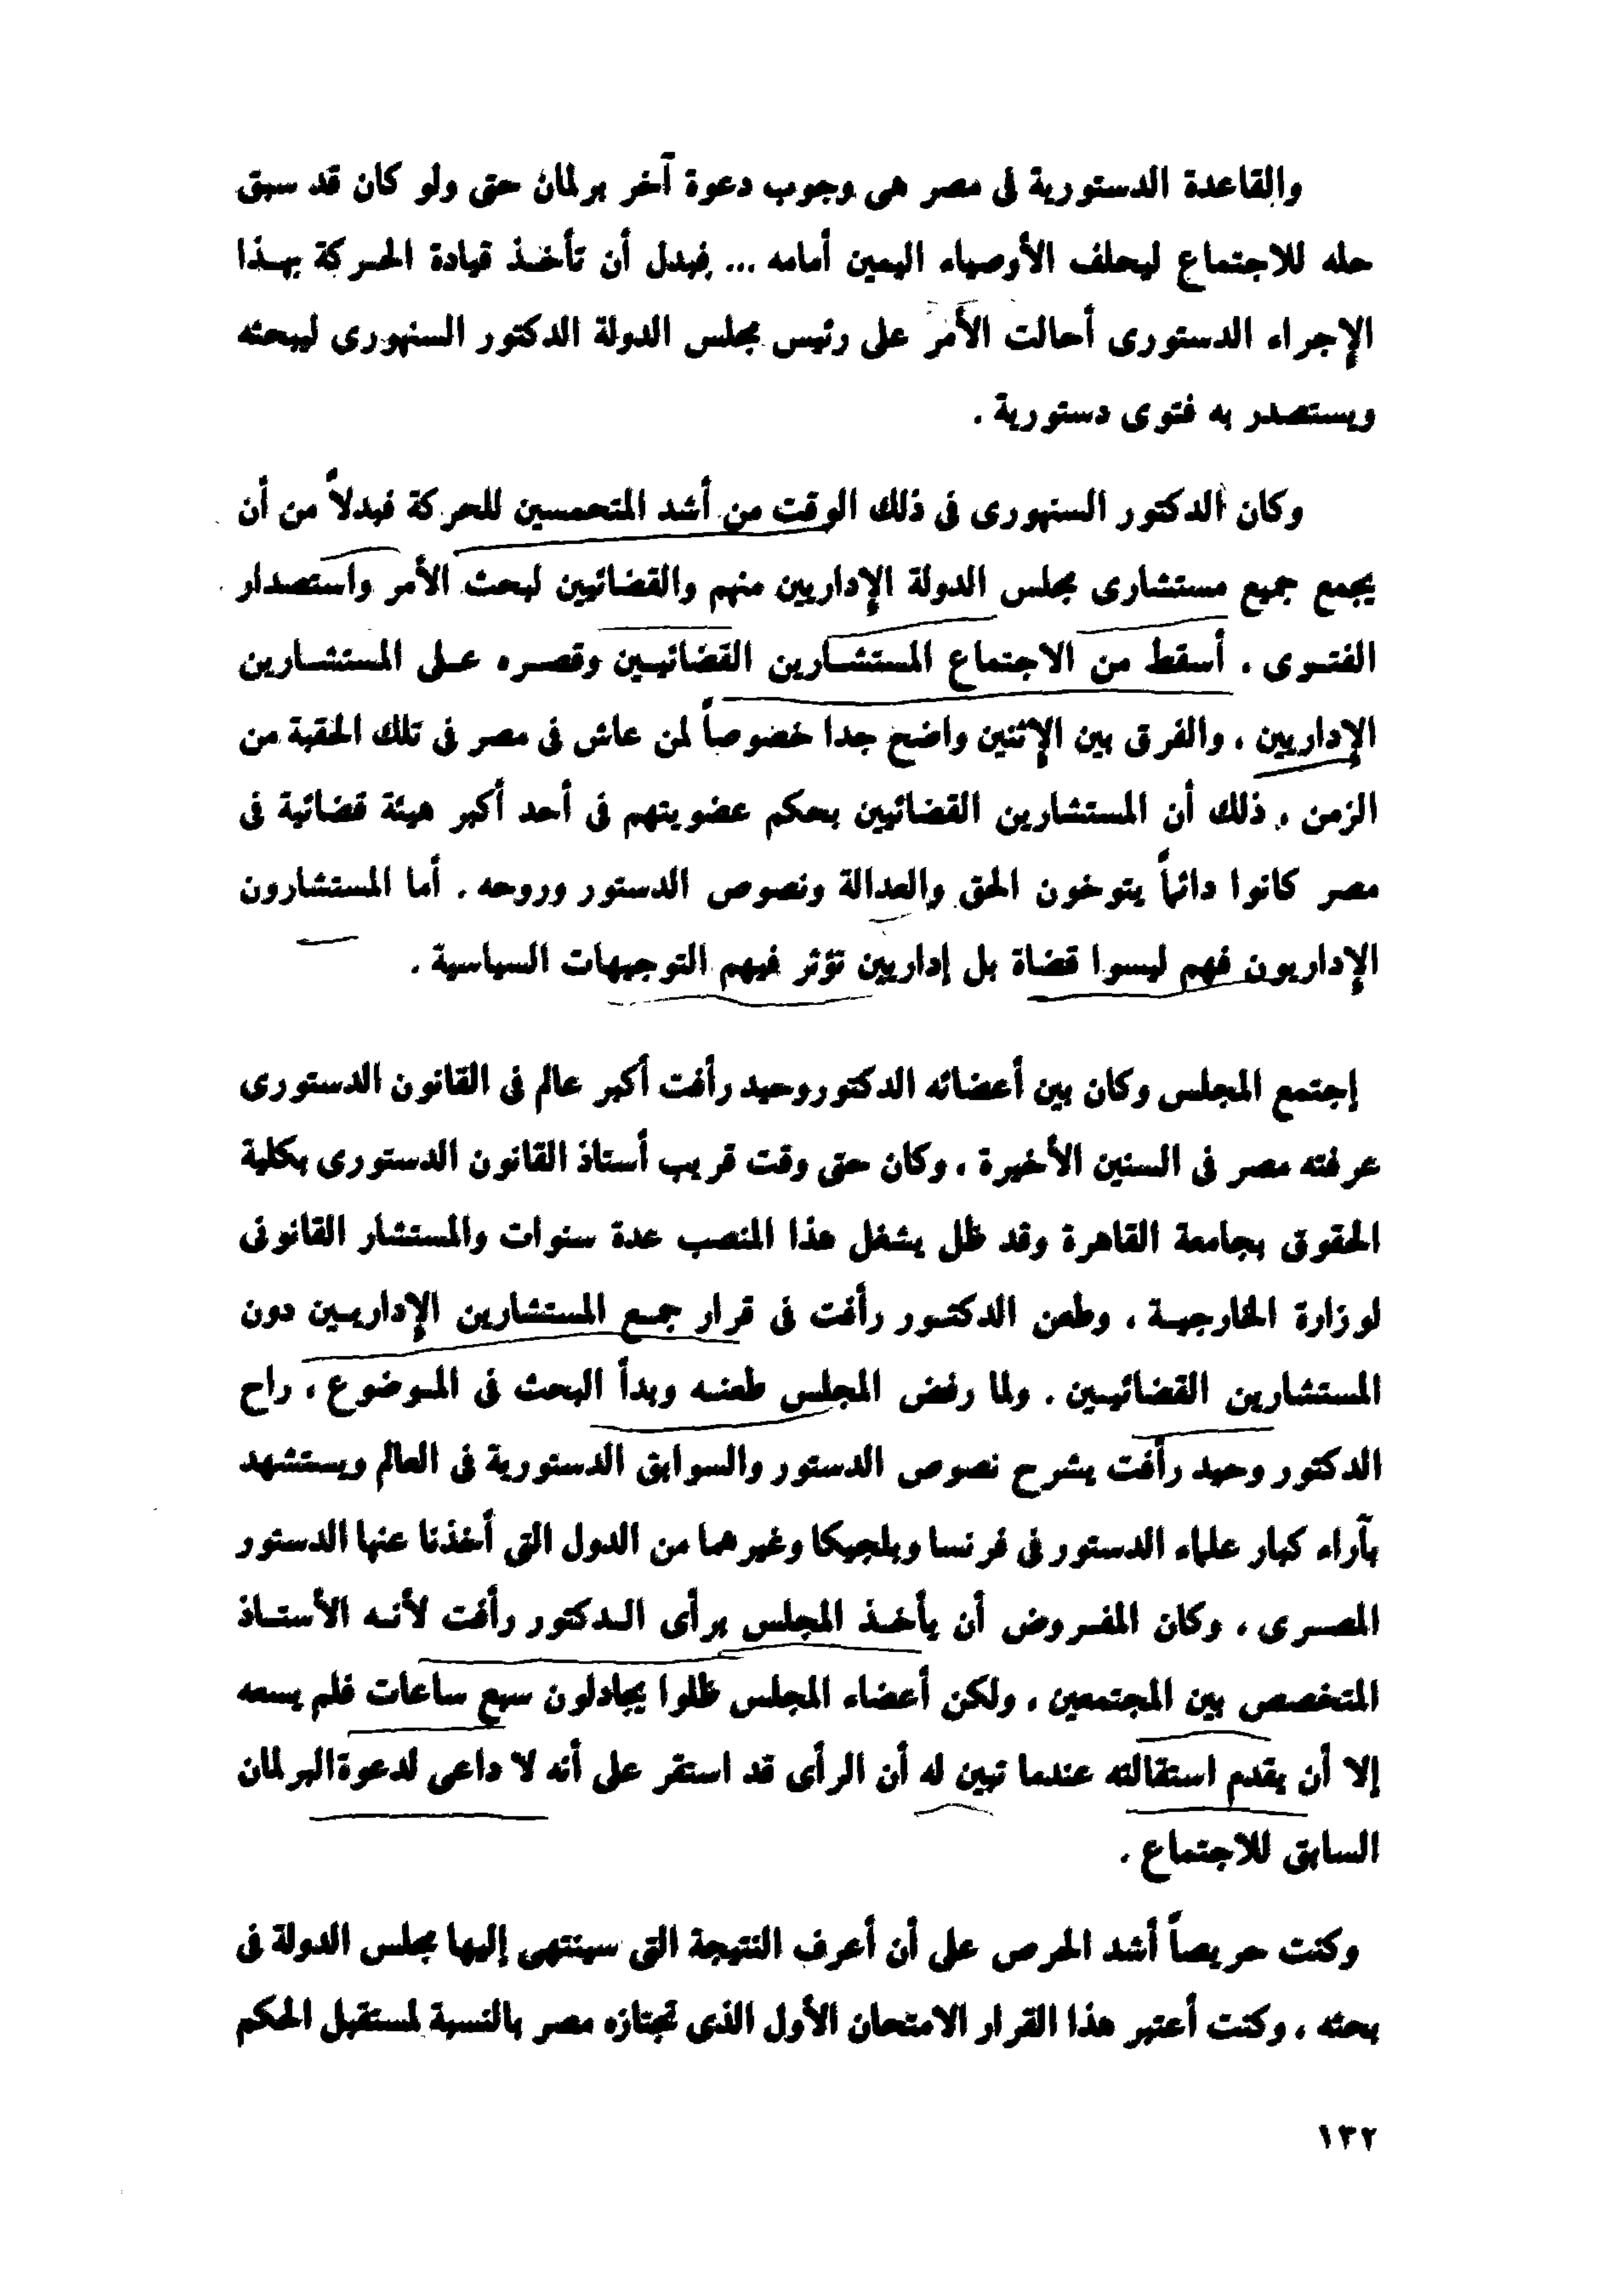 والقاعدة الدستورية فى مصر هى وجوب دعوة آخر برلمان حتى ولو كان قد سبق
حله للاجتماع ليحلف الأوصياء اليمين أمامه ... فبدل أن تأخذ قيادة الحركة بهذا
الإجراء الدستورى أحالت الأمر على رئيس مجلس الدولة الدكتور السنهورى ليبحثه
ويستصدر به فتوى دستورية .
وكان الدكتور السنهورى فى ذلك الوقت من أشد المتحمسين للحركة فبدلاً من أن
يجمع جميع مستشارى مجلس الدولة الإداريين منهم والقضائيين لبحث الأمر واستصدار
الفتوى . أسقط من الاجتماع المستشارين القضائيين وقصره على المستشارين
الإداريين ، والفرق بين الإثنين واضح جدا خصوصاً لمن عاش فى مصر فى تلك الحقبة من
الزمن ، ذلك أن المستشارين القضائيين بحكم عضويتهم فى أحد أكبر هيئة قضائية فى
مصر كانوا دائماً يتوخون الحق والعدالة ونصوص الدستور وروحه . أما المستشارون
الإداريون فهم ليسوا قضاة بل إداريين تؤثر فيهم التوجيهات السياسية .
إجتمع المجلس وكان بين أعضائه الدكتور وحيد رأفت أكبر عالم فى القانون الدستورى
عرفته مصر فى السنين الأخيرة ، وكان حتى وقت قريب أستاذ القانون الدستورى بكلية
الحقوق بجامعة القاهرة وقد ظل يشغل هذا المنصب عدة سنوات والمستشار القانونى
لوزارة الخارجية ، وطعن الدكتور رأفت فى قرار جمع المستشارين الإداريين دون
المستشارين القضائيين . ولما رفض المجلس طعنه وبدأ البحث فى الموضوع ، راح
الدكتور وحيد رأفت يشرح نصوص الدستور والسوابق الدستورية فى العالم ويستشهد
بآراء كبار علماء الدستور فى فرنسا وبلجيكا وغيرهما من الدول التى أخذنا عنها الدستور
المصرى ، وكان المفروض أن يأخذ المجلس برأى الدكتور رأفت لأنه الأستاذ
المتخصص بين المجتمعين ، ولكن أعضاء المجلس ظلوا يجادلون سبع ساعات فلم يسعه
إلا أن يقدم استقالته عندما تبين له أن الرأى قد استقر على أنه لا داعى لدعوة البرلمان
السابق للاجتماع .
وكنت حريصاً أشد الحرص على أن أعرف النتيجة التى سينتهى إليها مجلس الدولة فى
بحثه ، وكنت أعتبر هذا القرار الامتحان الأول الذى تجتازه مصر بالنسبة لمستقبل الحكم
١٣٢